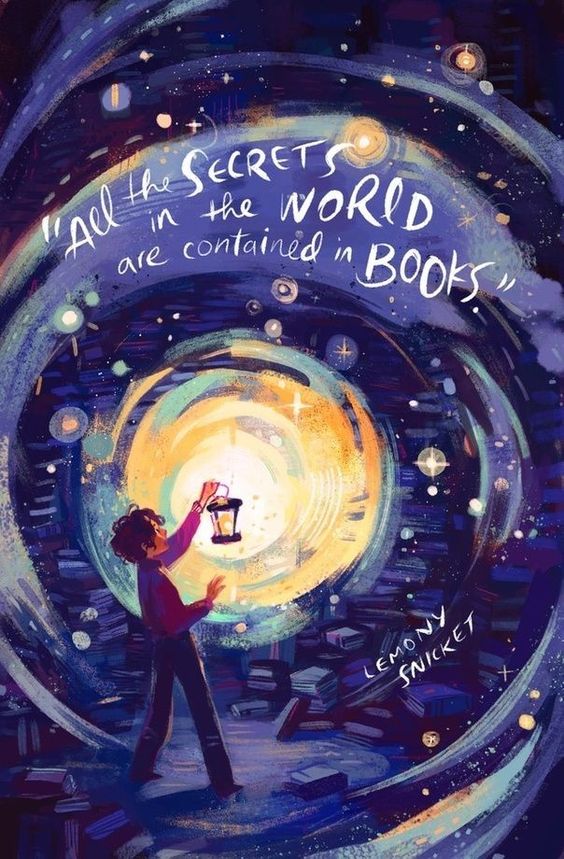 "All the SECRETS
in the WORLD
are contained in BOOKS"
LEMONY
SNICKET